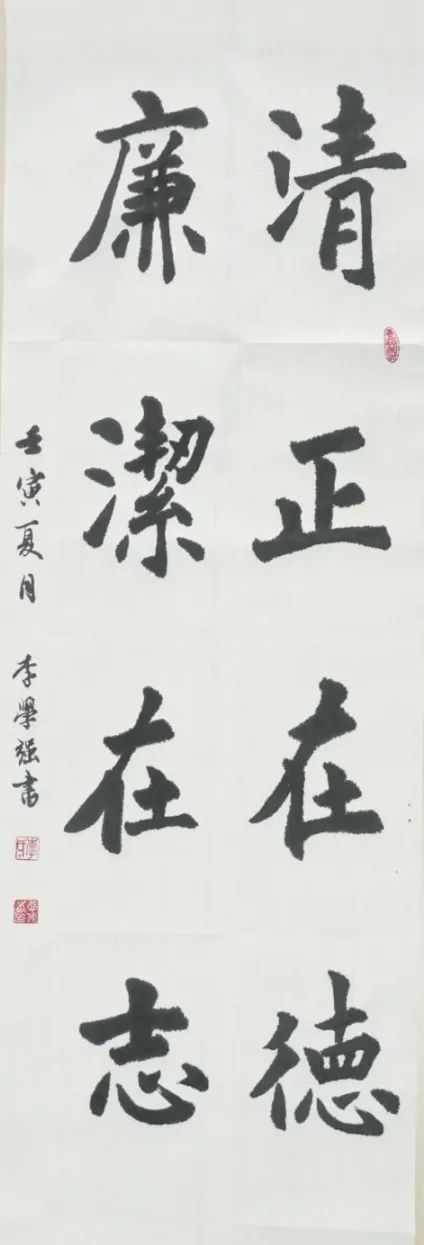 清正在德
廉潔在志
壬寅夏月 李學強书